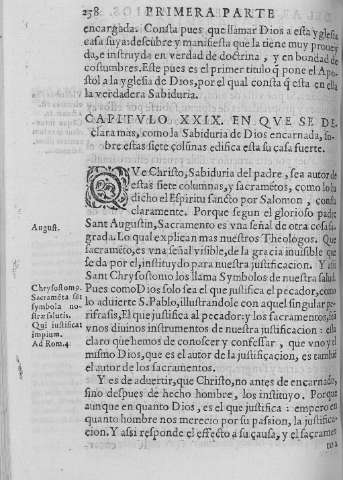 258 PRIMERA PARTE
encargada. Consta pues que llamar Dios a esta yglesia
casa suya: descubre y manifiesta que la tiene muy proueʸ
da, e instruyda en verdad de doctrina, y en bondad de
costumbres. Este pues es el primer titulo q̃ pone el Apo-
stol a la yglesia de Dios, por el qual consta q̃ esta en ella
la verdadera Sabiduria.
CAPITVLO XXIX. EN QVE SE DE
clara mas, como la Sabiduria de Dios encarnada, so-
bre estas siete colũnas edifica esta su casa fuerte.
QVe Christo, Sabiduria del padre, sea autor de
estas siete columnas, y sacramẽtos, como lo ha
dicho el Espiritu sancto por Salomon, consta
claramente. Porque segun el glorioso padre
August.
Sant Augustin, Sacramento es vna señal de otra cosa sa-
grada. Lo qual explican mas nuestros Theologos. Que
sacramẽto, es vna señal visible, de la gracia inuisible que
se da por el, instituydo para nuestra justificacion. Y assi
Sant Chrysostomo los llama Symbolos de nuestra salud.
Chrysostomo.
Sacramẽta sũt
symbola no-
stræ salutis.
Qui iustificat
impium.
Ad Rom. 4.
Pues como Dios solo sea el que justifica el pecador, como
lo aduierte S. Pablo, illustrandole con aquel singular pe-
rifrasis, El que justifica al pecador: y los sacramentos,
vnos diuinos instrumentos de nuestra justificacion: esta
claro que hemos de conoscer y confessar, que vno y el
mismo Dios, que es el autor de la justificacion, es tambiẽ
el autor de los sacramentos.
Y es de aduertir, que Christo, no antes de encarnado,
sino despues de hecho hombre, los instituyo. Porque
aunque en quanto Dios, es el que justifica: empero en
quanto hombre nos merecio por su passion, la justifica-
cion. Y assi responde el effecto a su causa, y el sacramen
to a